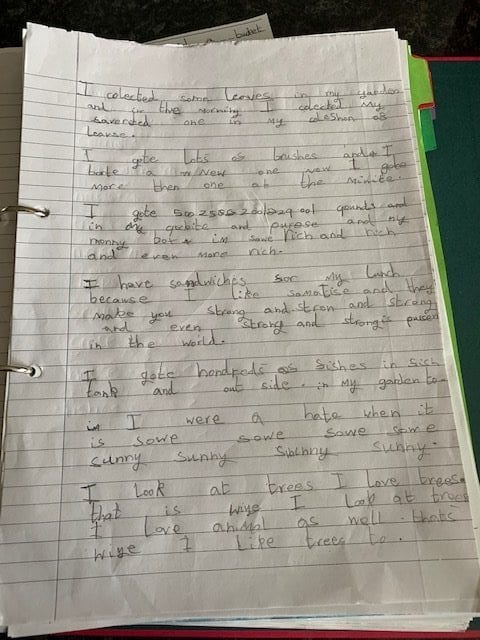 I colected some leaves in my garden
and in the morning I colected my
one in my of
I gote lots of brushes and I
a new one now I gote
more then one at the minite.
I gote pounds and
in my and and my
monny I'm sowe rich and rich
and even more rich.
I have sandwiches for my lunch
because I like and they
make you strong and stron and strong
and even strong and strongis
in the world.
I gote hondreds of fishes in fish
tank and out side. in my garden to
I were a hate when it
is sowe sowe sowe some
sunny sunny sunny.
I look at trees I love trees
that is wiye I look at trees
I love animal as well. thats
wiye I like trees to.